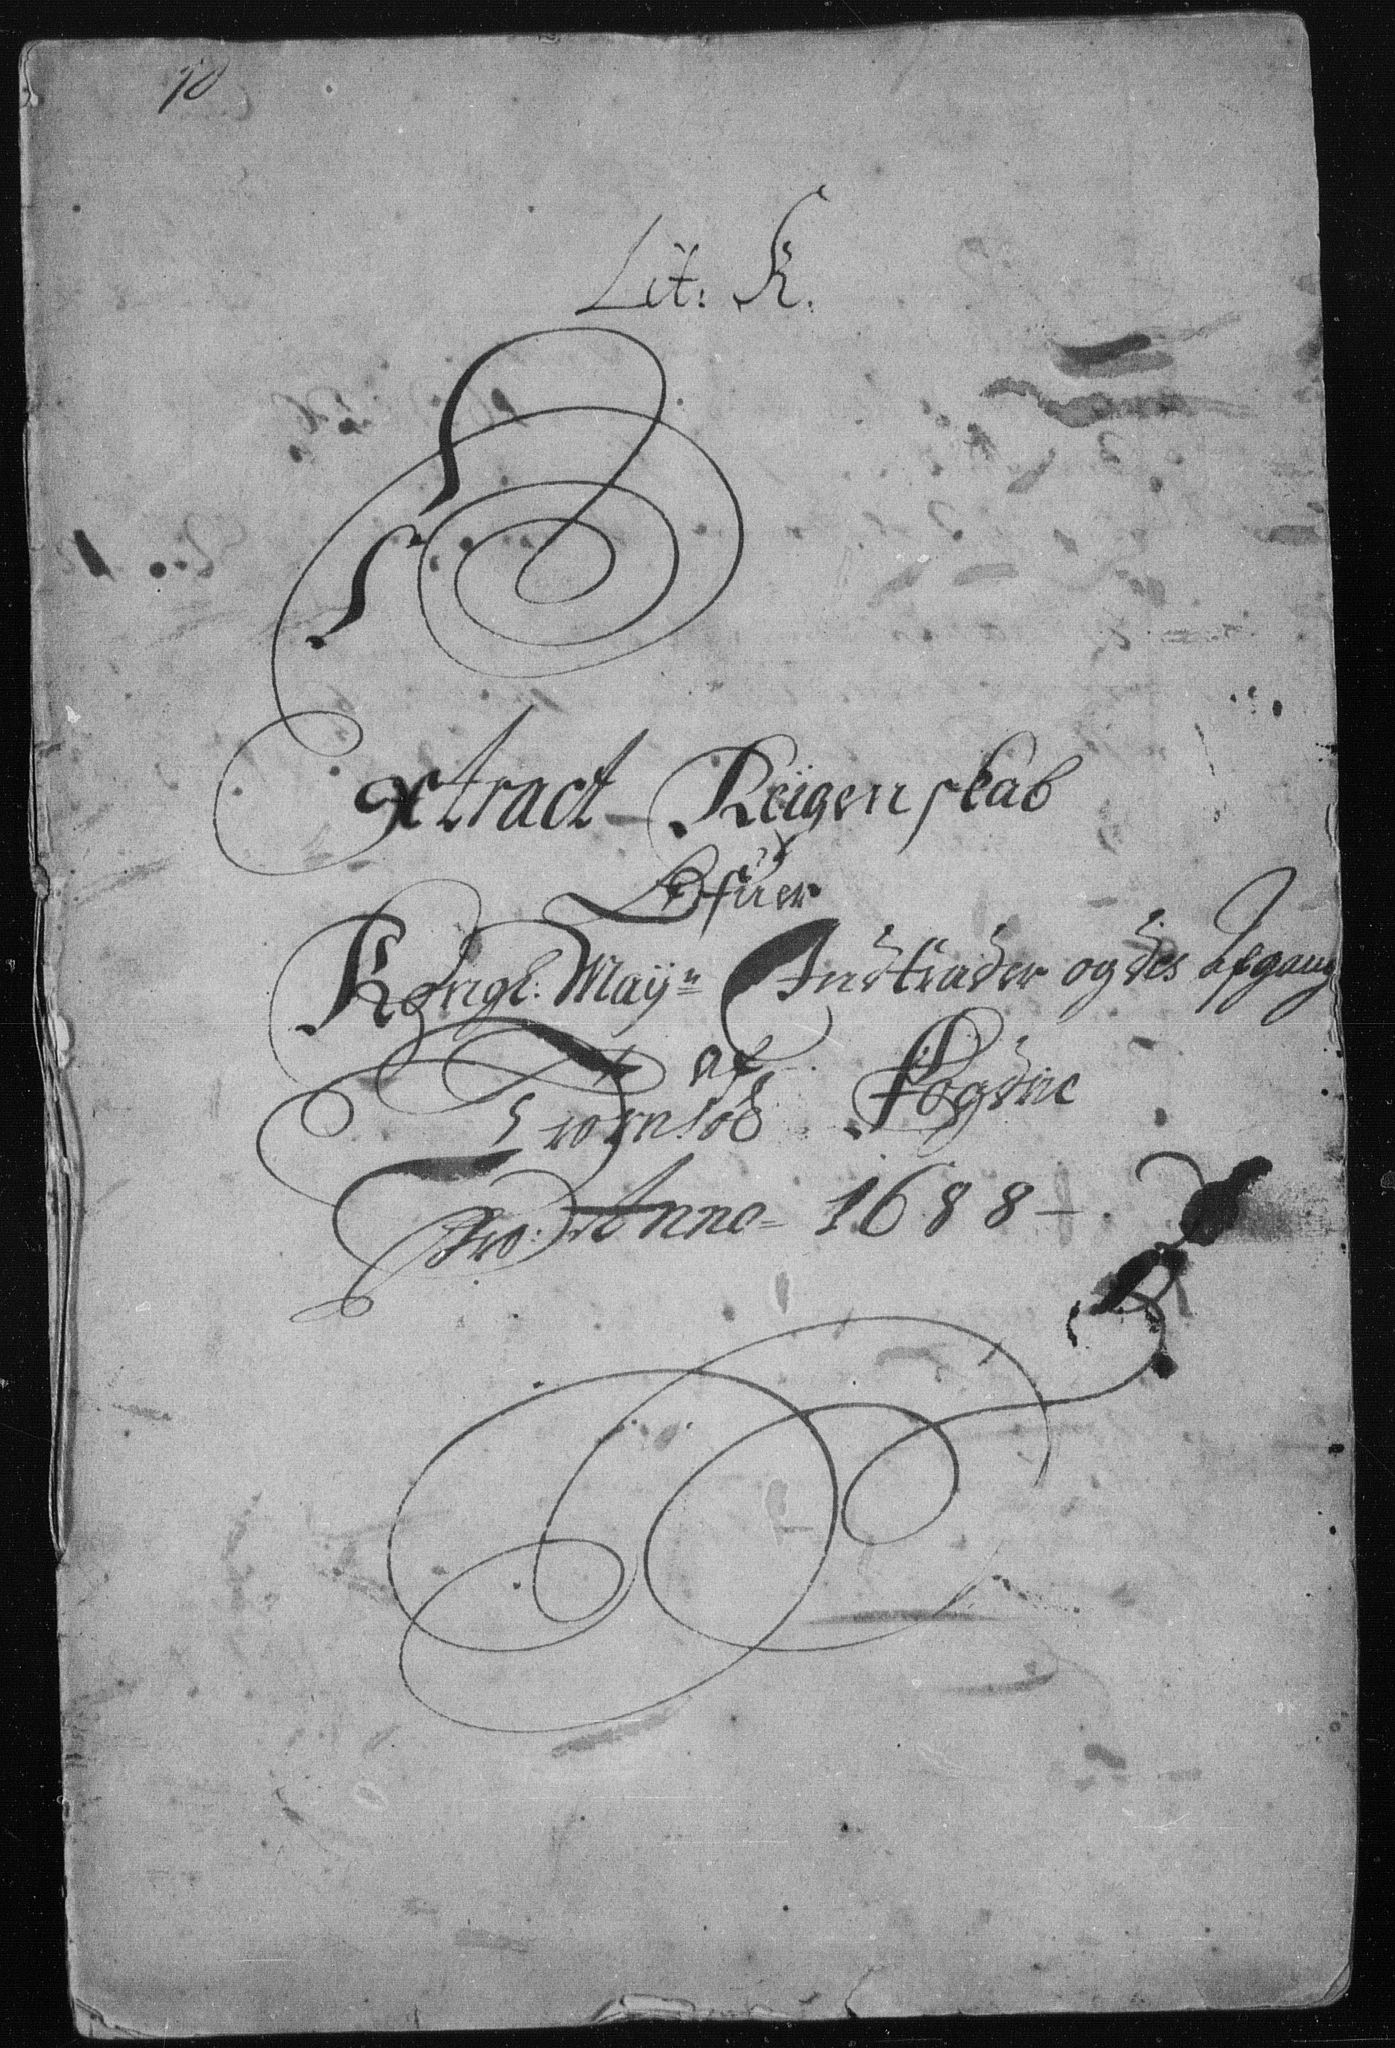 10
Lit: K.
Extract Reigenskab
Ofuer
Kongl: Mayts Indtrader og des Afgang
af
Tromsøe Fogdrie
Pro: Anno 1688